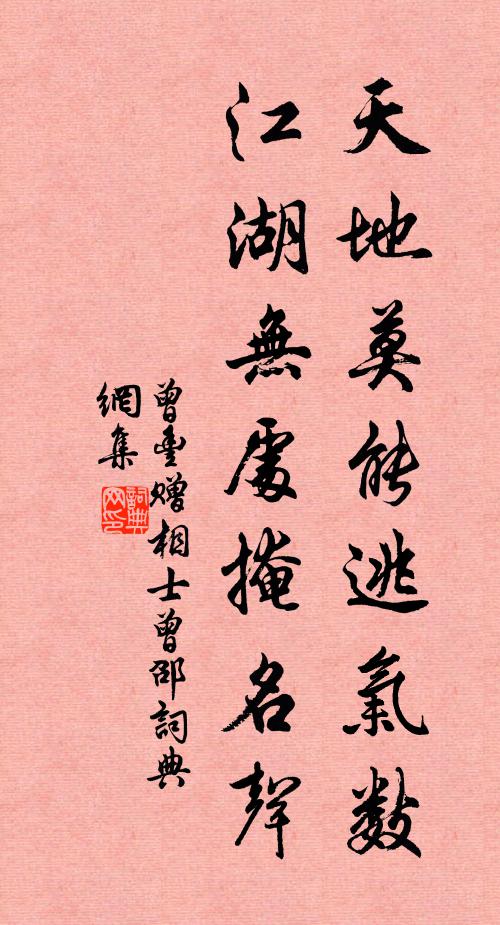 天地莫能逃氣數
江湖無處掩名聲
曾豐贈相士曾邵詞典
網集
詞典
网印